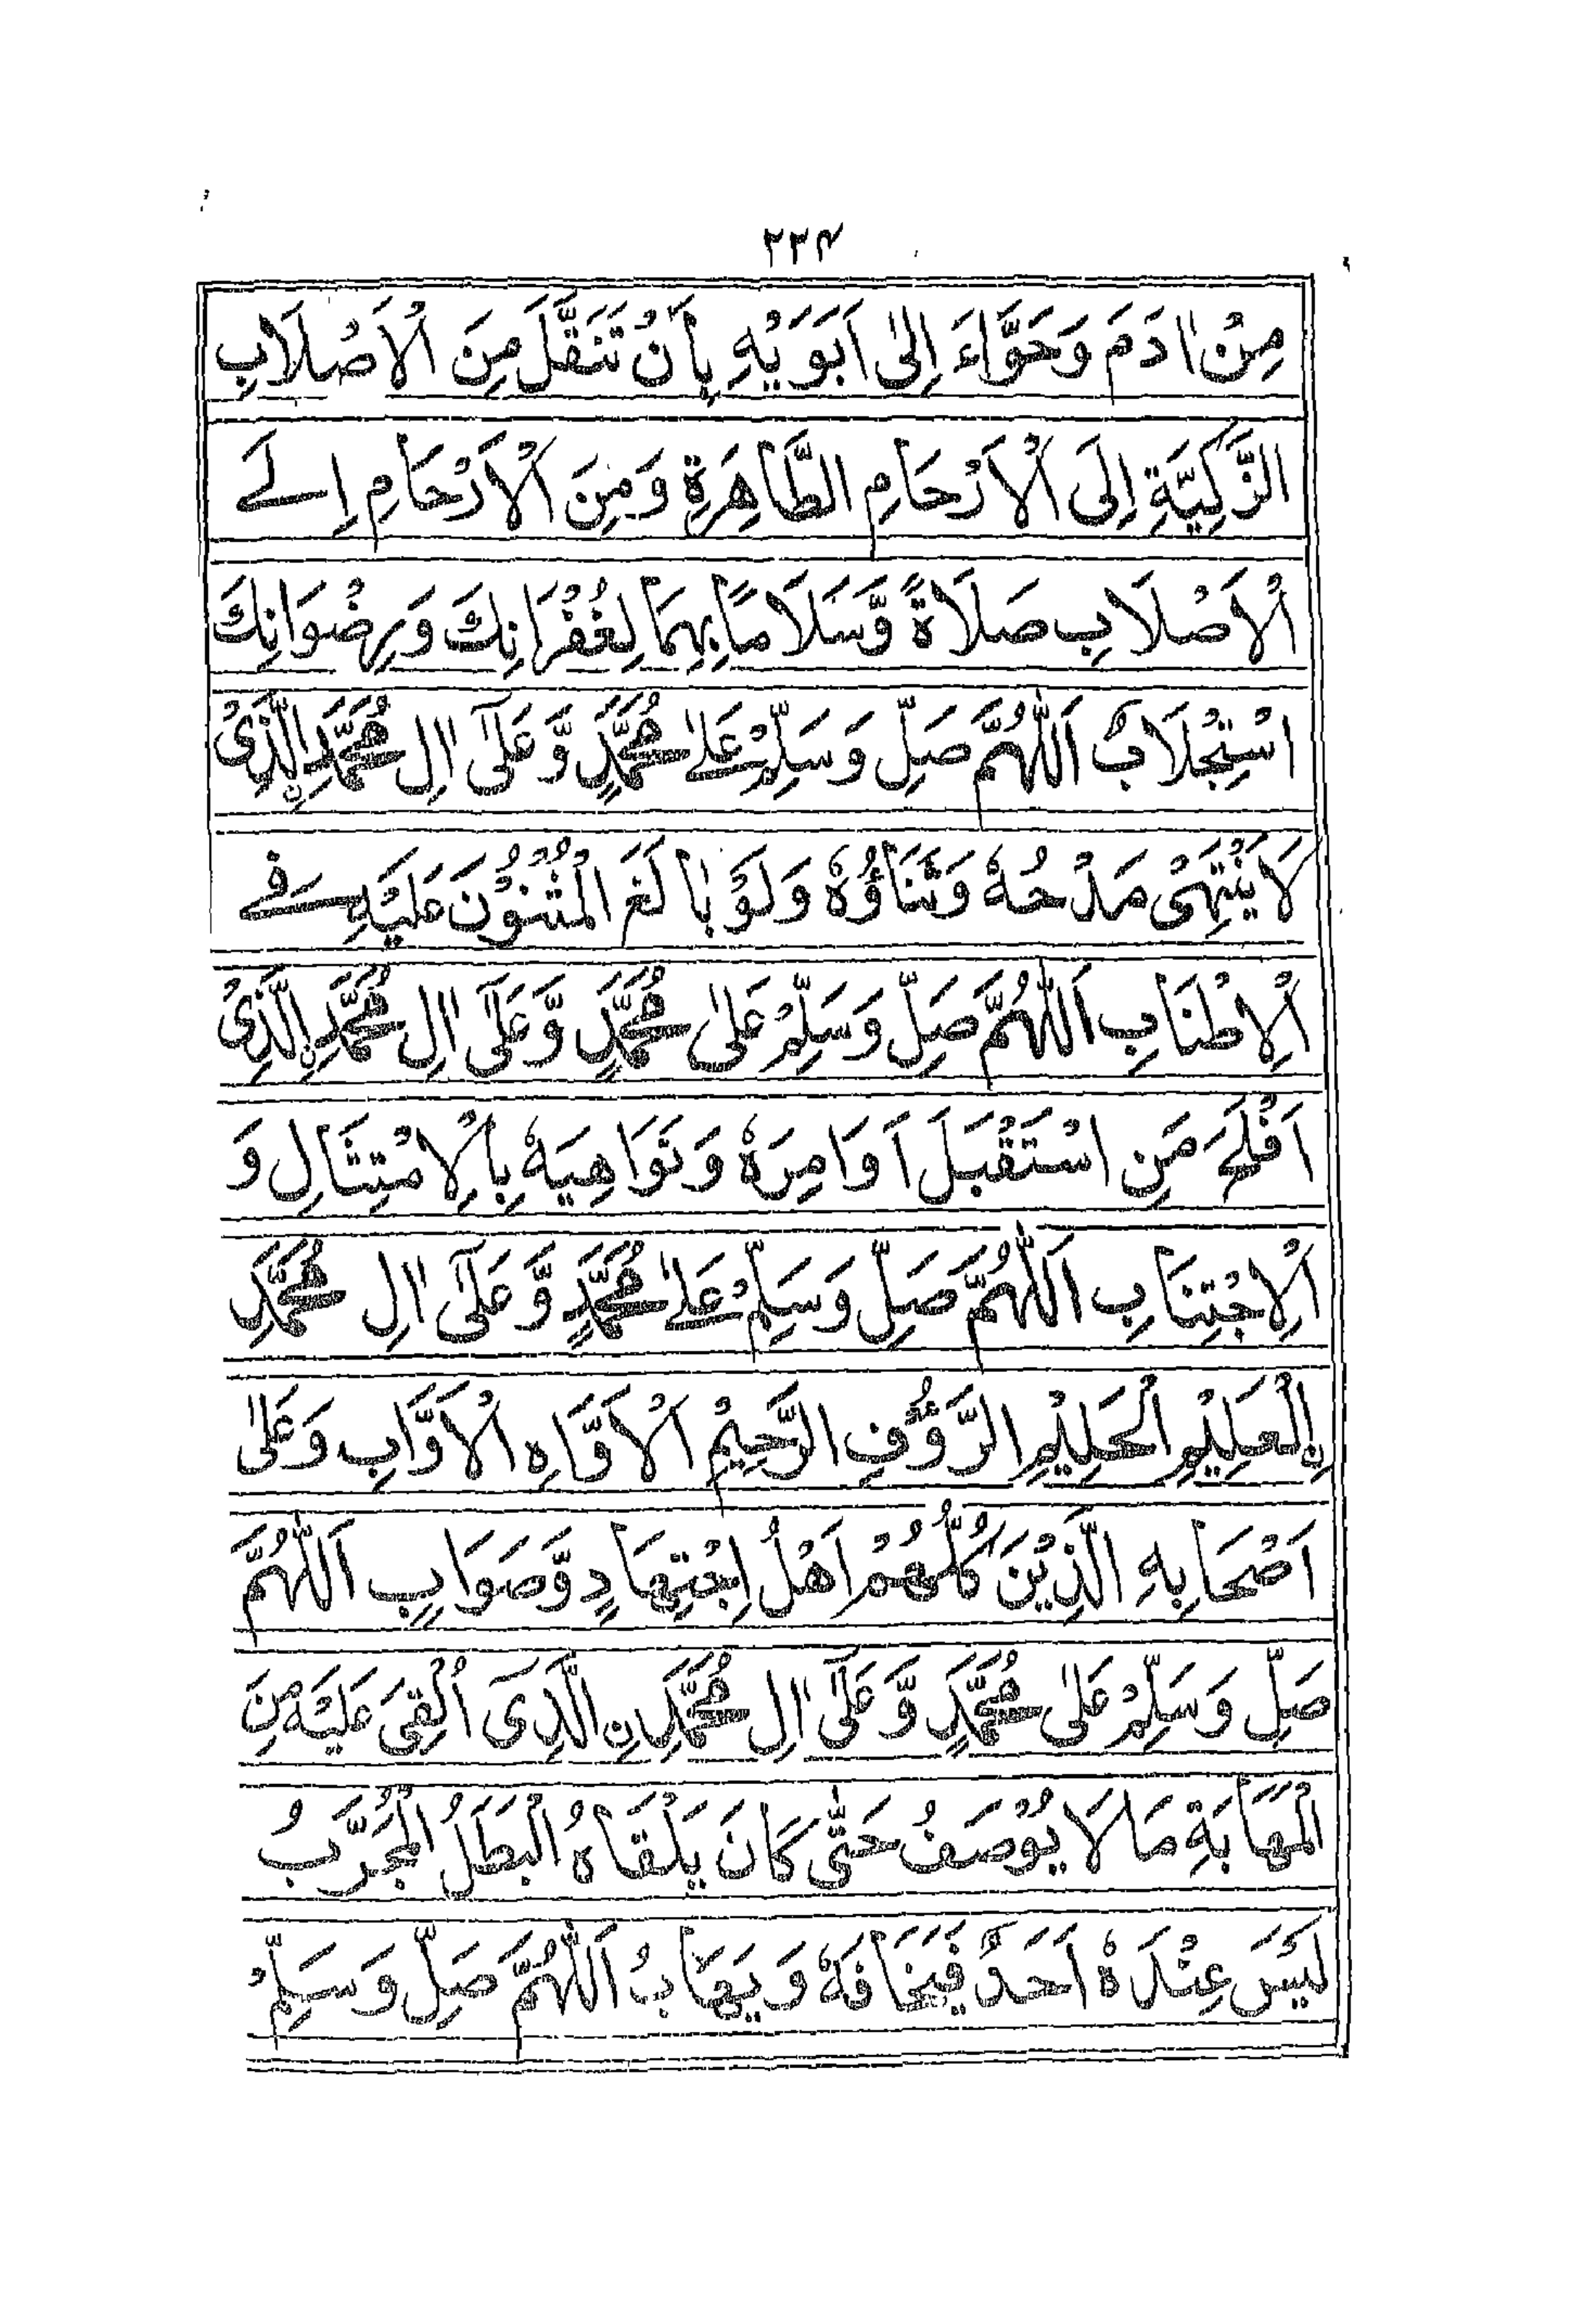 ۲۳۴
مِنْ اٰدَمَ وَحَوَّاءَ اِلىٰ اَبَوَيْهِ بِاَنْ تَنَقَّلَ مِنَ الْاَصْلَابِ
الزَّكِيَّةِ اِلَى الْاَرْحَامِ الطَّاهِرَةِ وَمِنَ الْاَرْحَامِ اِلَے
الْاَصْلَابِ صَلَاةً وَّسَلَامًا بِهِمَا لِغُفْرَانِكَ وَرِضْوَانِكَ
اسْتِجْلَابٌ اَللّٰهُمَّ صَلِّ وَسَلِّمْ عَلےٰ مُحَمَّدٍ وَّعَلٰٓى اٰلِ مُحَمَّدِ ۣالَّذِىْ
لَا يَنْتَهِىْ مَدْحُهٗ وَثَنَاؤُهٗ وَلَوْ بَالَغَ الْمُثْنُوْنَ عَلَيْهِ فے
الْاِطْنَابِ اَللّٰهُمَّ صَلِّ وَسَلِّمْ عَلىٰ مُحَمَّدٍ وَّعَلٰٓى اٰلِ مُحَمَّدِ ۣالَّذِىْ
اَفْلَحَ مَنِ اسْتَقْبَلَ اَوَامِرَهٗ وَنَوَاهِيَهٗ بِالْاِمْتِثَالِ وَ
الْاِجْتِنَابِ اَللّٰهُمَّ صَلِّ وَسَلِّمْ عَلےٰ مُحَمَّدٍ وَّعَلٰٓى اٰلِ مُحَمَّدِ
ۣالْعَلِيْمِ الْحَلِيْمِ الرَّؤُفِ الرَّحِيْمِ الْاَوَّاهِ الْاَوَّابِ وَعَلىٰ
اَصْحَابِهِ الَّذِيْنَ كُلُّهُمْ اَهْلُ اِجْتِهَادٍ وَّصَوَابٍ اَللّٰهُمَّ
صَلِّ وَسَلِّمْ عَلىٰ مُحَمَّدٍ وَّعَلٰٓى اٰلِ مُحَمَّدِنِ الَّذِى اُلْقِىَ عَلَيْهِ مِنَ
الْمَهَابَةِ مَا لَا يُوْصَفُ حَتّٰى كَانَ يَلْقَاهُ الْبَطَلُ الْمُجَرَّبُ
لَيْسَ عِنْدَهٗ اَحَدٌ فَيَخَافَهٗ وَيَهَابُ اَللّٰهُمَّ صَلِّ وَسَلِّمْ